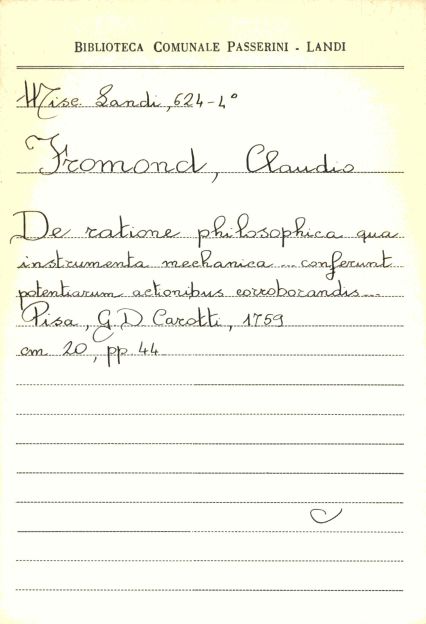 BIBLIOTECA COMUNALE PASSERINI - LANDI
Misc. Landi, 624-4°
Fromond, Claudio
De ratione philosophica qua
instrumenta mechanica ... conferunt
potentiarum actionibus corroborandis...
Pisa, G.D. Carotti, 1759
cm. 20, pp. 44